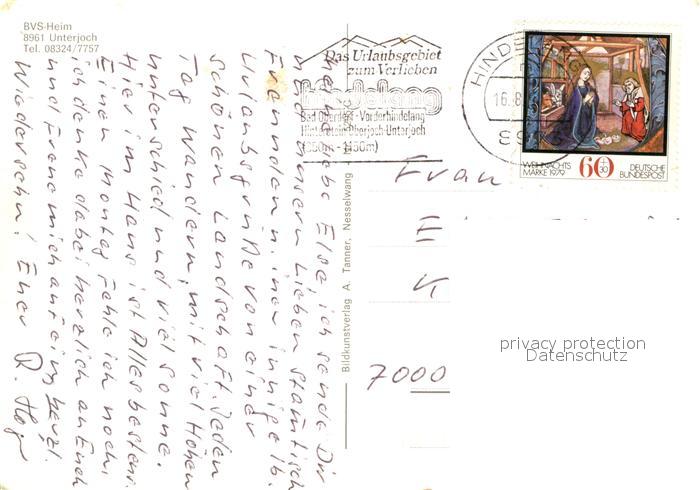 BVS-Heim
8961 Unterjoch
Tel. 08324/7757
Meine liebe Else, ich sende Dir
und unsern lieben Stamtisch
Freunden n. inige lb.
Urlaubsgrüße von einer
schönen Landschaft. Jeden
Tag Wandern, mit viel Höhen
unterschied und viel Sonne.
Hie im Haus ist Alles bestens.
Einen Montag fehle ich noch,
ich denke dabei herzlich an Euch
und freue mich auf ein herzl.
Wiedersehn! Euer R.
Bildkunstverlag A. Tanner, Nesselwang
Das Urlaubsgebiet
zum Verlieben
hindelang
Bad Oberdorf-Vorderhindelang
Hinterstein-Oberjoch-Unterjoch
(850m-1150m)
HINDELANG
16.8
WEIHNACHTS
MARKE 1979
60
+30
DEUTSCHE
BUNDESPOST
Frau
E
K
7000
privacy protection
Datenschutz